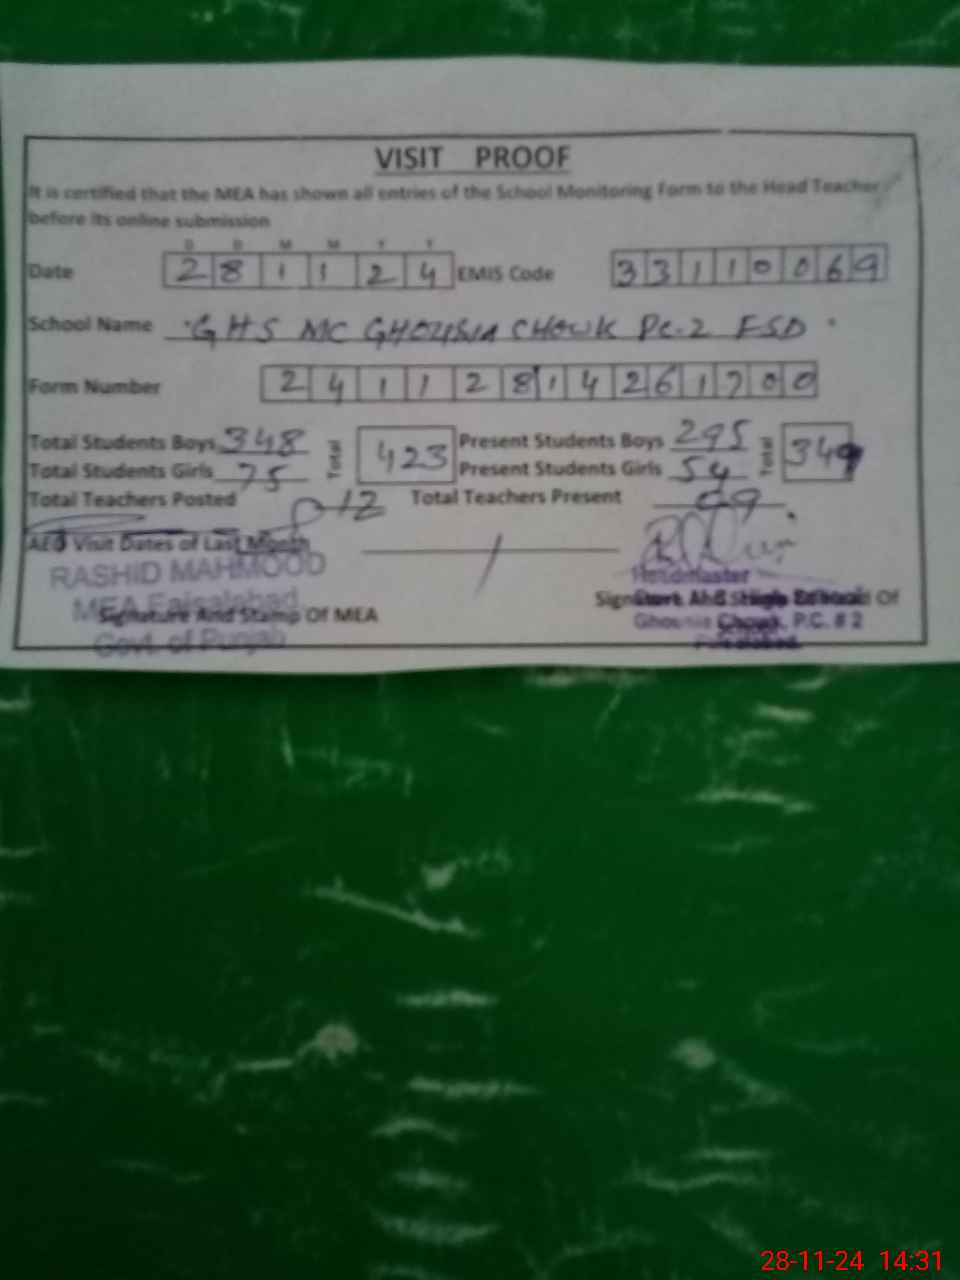 VISIT PROOF
It is certified that the MEA has shown all entries of the School Monitoring Form to the Head Teacher
before its online submission
D D M M Y Y
Date 2 8 1 1 2 4 EMIS Code 3 3 1 1 0 0 6 9
School Name GHS MC GHOUSIA CHOWK PC.2 FSD
Form Number 2 4 1 1 2 8 1 4 2 6 1 7 0 0
Total Students Boys 348 Total 423 Present Students Boys 295 Total 349
Total Students Girls 75 Present Students Girls 54
Total Teachers Posted 12 Total Teachers Present 09
AEO Visit Dates of Last Month /
RASHID MAHMOOD
MEA Faisalabad
Govt. of Punjab
Signature And Stamp Of MEA
Headmaster
Signature And Stamp Of
Ghousia Chowk, P.C. # 2
Faisalabad.
28-11-24 14:31